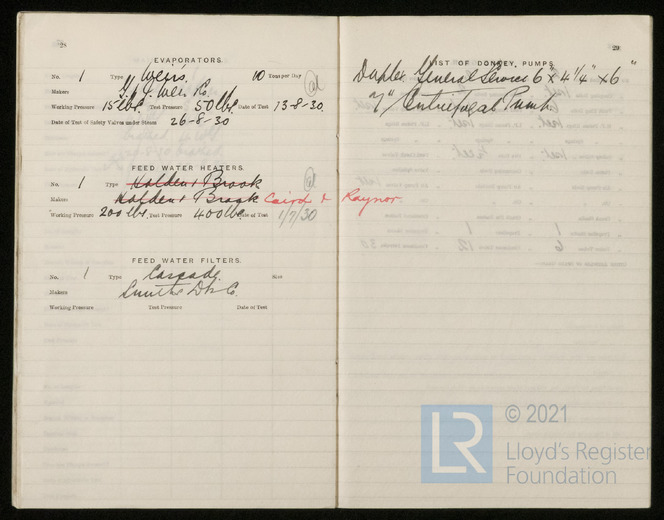 28
EVAPORATORS.
No. 1 Type Weir's. 10 Tons per Day
Makers G. & J. Weir Co.
Working Pressure 15 lbs. Test Pressure 50 lbs. Date of Test 13-8-30.
Date of Test of Safety Valves under Steam 26-8-30
FEED WATER HEATERS.
No. 1 Type Holden & Brook
Makers Holden & Brook Caird & Raynor.
Working Pressure 200 lbs. Test Pressure 400 lbs. Date of Test 1/7/30
FEED WATER FILTERS.
No. 1 Type Cascade. Size
Makers
Working Pressure Test Pressure Date of Test
29
LIST OF DONKEY PUMPS.
Duplex General Service 6" x 4 1/4" x 6"
7" Centrifugal Pump
LR © 2021
Lloyd's Register
Foundation